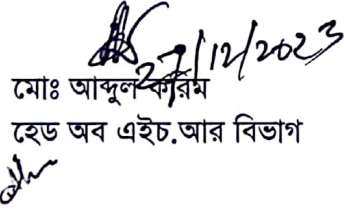 27/12/2023
মোঃ আব্দুল করিম
হেড অব এইচ.আর বিভাগ